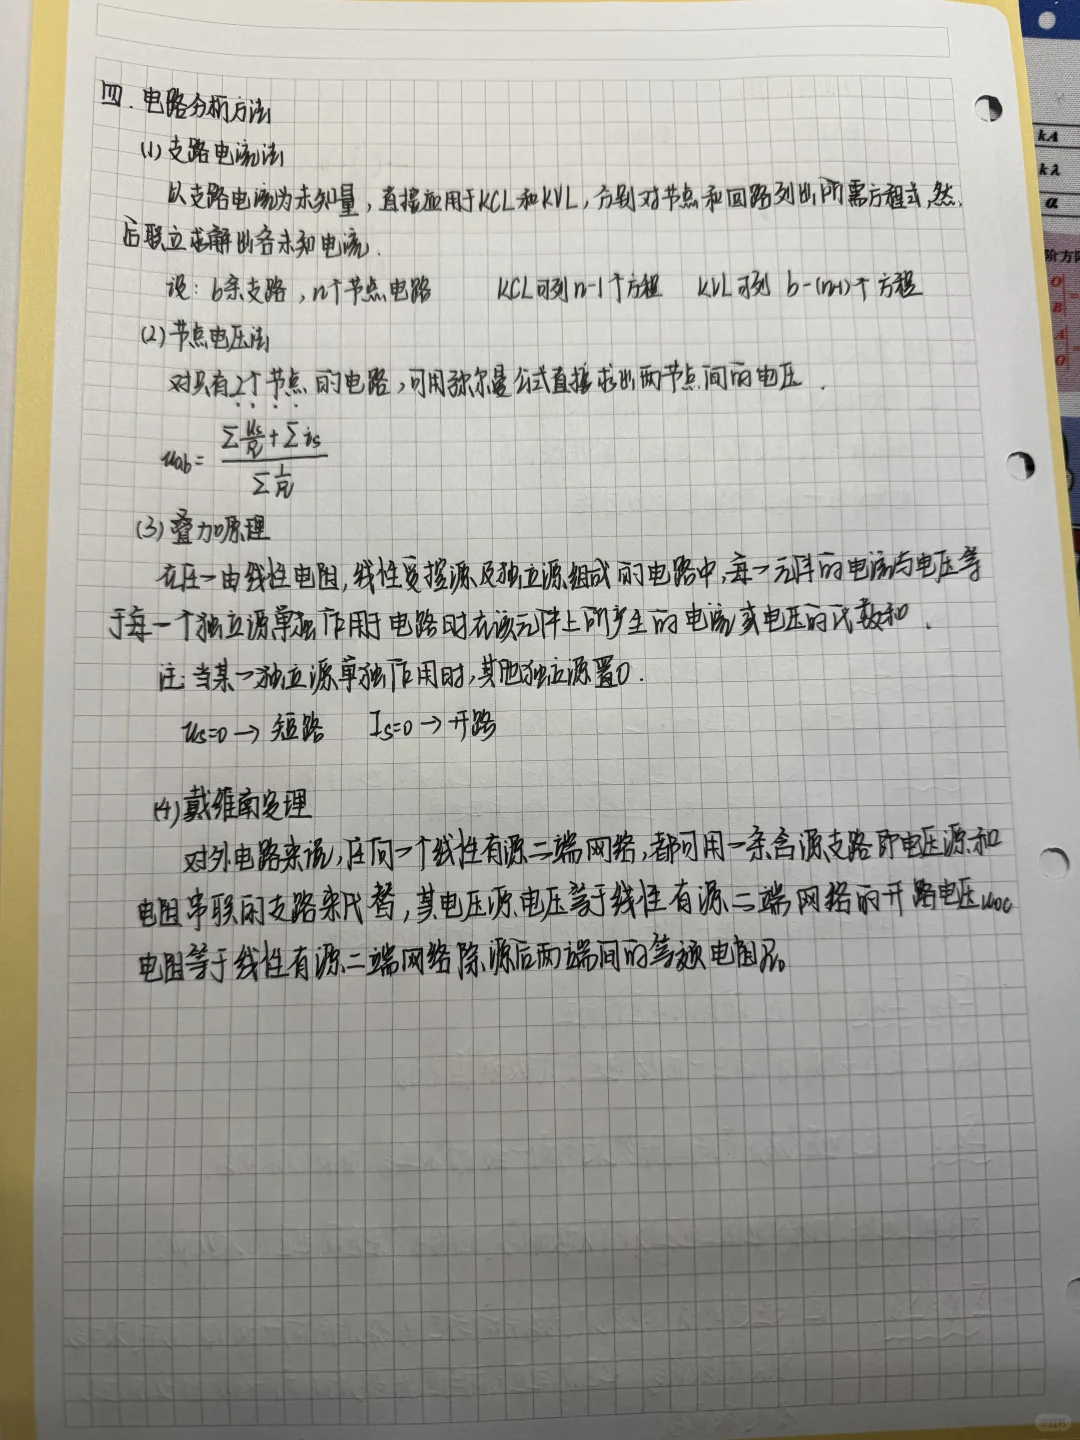 四.电路分析方法
(1)支路电流法
以支路电流为未知量,直接应用于KCL和KVL,分别对节点和回路列出所需方程式,然
后联立求解出各未知电流.
设:b条支路,n个节点电路 KCL可列n-1个方程 KVL可列 b-(n-1)个方程
(2)节点电压法
对只有2个节点的电路,可用弥尔曼公式直接求出两节点间的电压.
u_ab = (Σ u_s/R + Σ i_s) / (Σ 1/R)
(3)叠加原理
在任一由线性电阻,线性受控源及独立源组成的电路中,每一元件的电流与电压等
于每一个独立源单独作用于电路时在该元件上所产生的电流或电压的代数和.
注:当某一独立源单独作用时,其他独立源置0.
u_s=0→短路 I_s=0→开路
(4)戴维南定理
对外电路来说,任何一个线性有源二端网络,都可用一条含源支路即电压源和
电阻串联的支路来代替,其电压源电压等于线性有源二端网络的开路电压u_oc
电阻等于线性有源二端网络除源后两端间的等效电阻R_o
kA
kλ
α
阶方阵